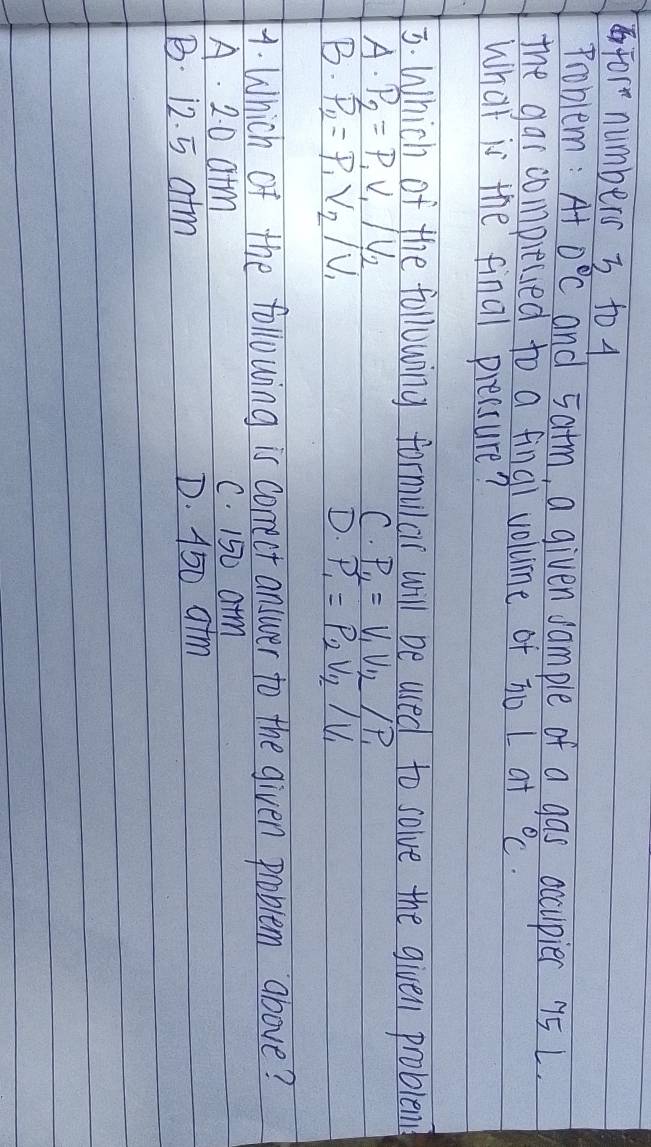 for numbers 3 to 4
Problem: At 0°C and 5atm, a given sample of a gas occupies 75 L.
The gas compressed to a final volume of 30 L at °C.
What is the final pressure?
3. Which of the following formulas will be used to solve the given problem?
A. P₂ = P₁V₁/V₂ C. P₂ = V₁V₂/P₁
B. P₂ = P₁V₂/V₁ D. P₁ = P₂V₂/V₁
4. Which of the following is correct answer to the given problem above?
A. 20 atm C. 150 atm
B. 12.5 atm D. 450 atm